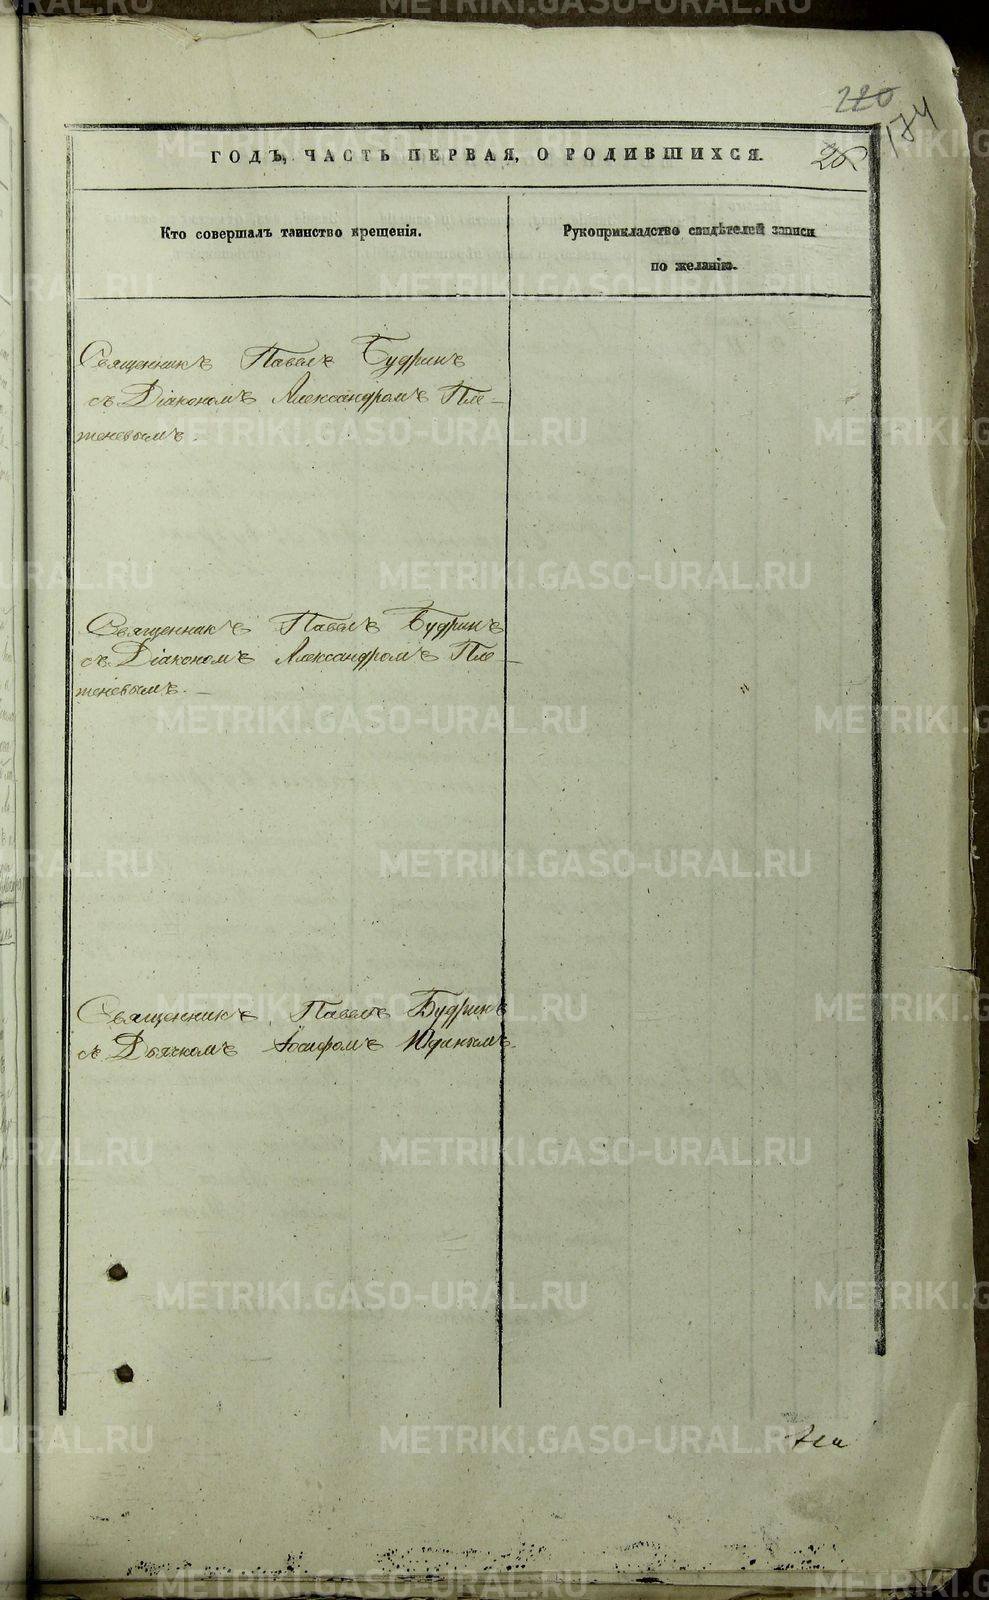 220
174
26
ГОДЪ, ЧАСТЬ ПЕРВАЯ, О РОДИВШИХСЯ.
Кто совершалъ таинство крещенія.
Рукоприкладство свидѣтелей записи
по желанію.
Священникъ Павелъ Будринъ
съ Діакономъ Александромъ Пле-
теневымъ.
Священникъ Павелъ Будринъ
съ Діакономъ Александромъ Пле-
теневымъ. —
Священникъ Павелъ Будринъ
съ Дьячкомъ Іосифомъ Юдинымъ.
METRIKI.GASO-URAL.RU